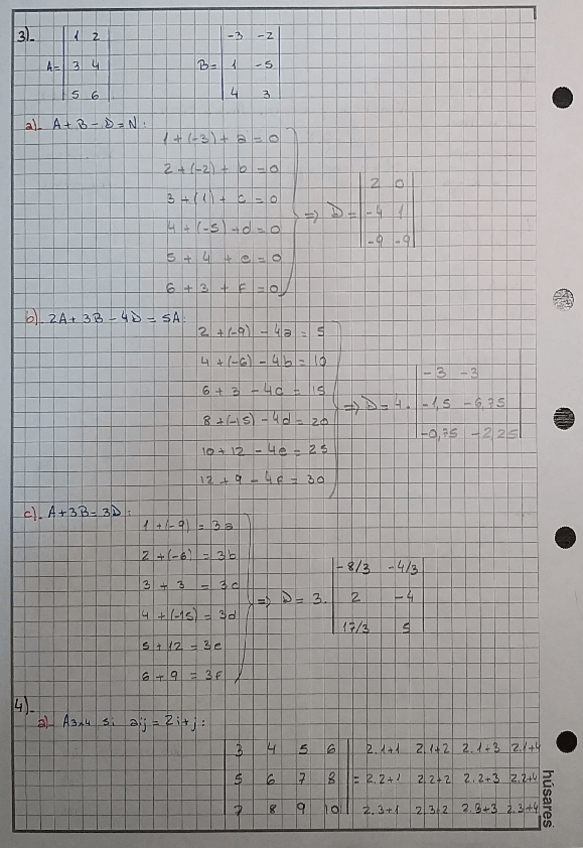 3)-
A= | 1 2 | B= | -3 -2 |
| 3 4 | | 1 -5 |
| 5 6 | | 4 3 |
a)- A+B-D=N:
1+(-3)+a=0
2+(-2)+b=0
3+(1)+c=0
4+(-5)+d=0
5+4+e=0
6+3+f=0
=> D= | 2 0 |
| -4 1 |
| -9 -9 |
b)- 2A+3B-4D=5A:
2+(-9)-4a=5
4+(-6)-4b=10
6+3-4c=15
8+(-15)-4d=20
10+12-4e=25
12+9-4f=30
=> D=4. | -3 -3 |
| -1,5 -6,75 |
| -0,75 -2,25 |
c)- A+3B=3D:
1+(-9)=3a
2+(-6)=3b
3+3=3c
4+(-15)=3d
5+12=3e
6+9=3f
=> D=3. | -8/3 -4/3 |
| 2 -4 |
| 17/3 5 |
4)-
a)- A3x4 si aij=2i+j:
| 3 4 5 6 | 2.1+1 2.1+2 2.1+3 2.1+4
| 5 6 7 8 | = 2.2+1 2.2+2 2.2+3 2.2+4
| 7 8 9 10 | 2.3+1 2.3+2 2.3+3 2.3+4
húsares